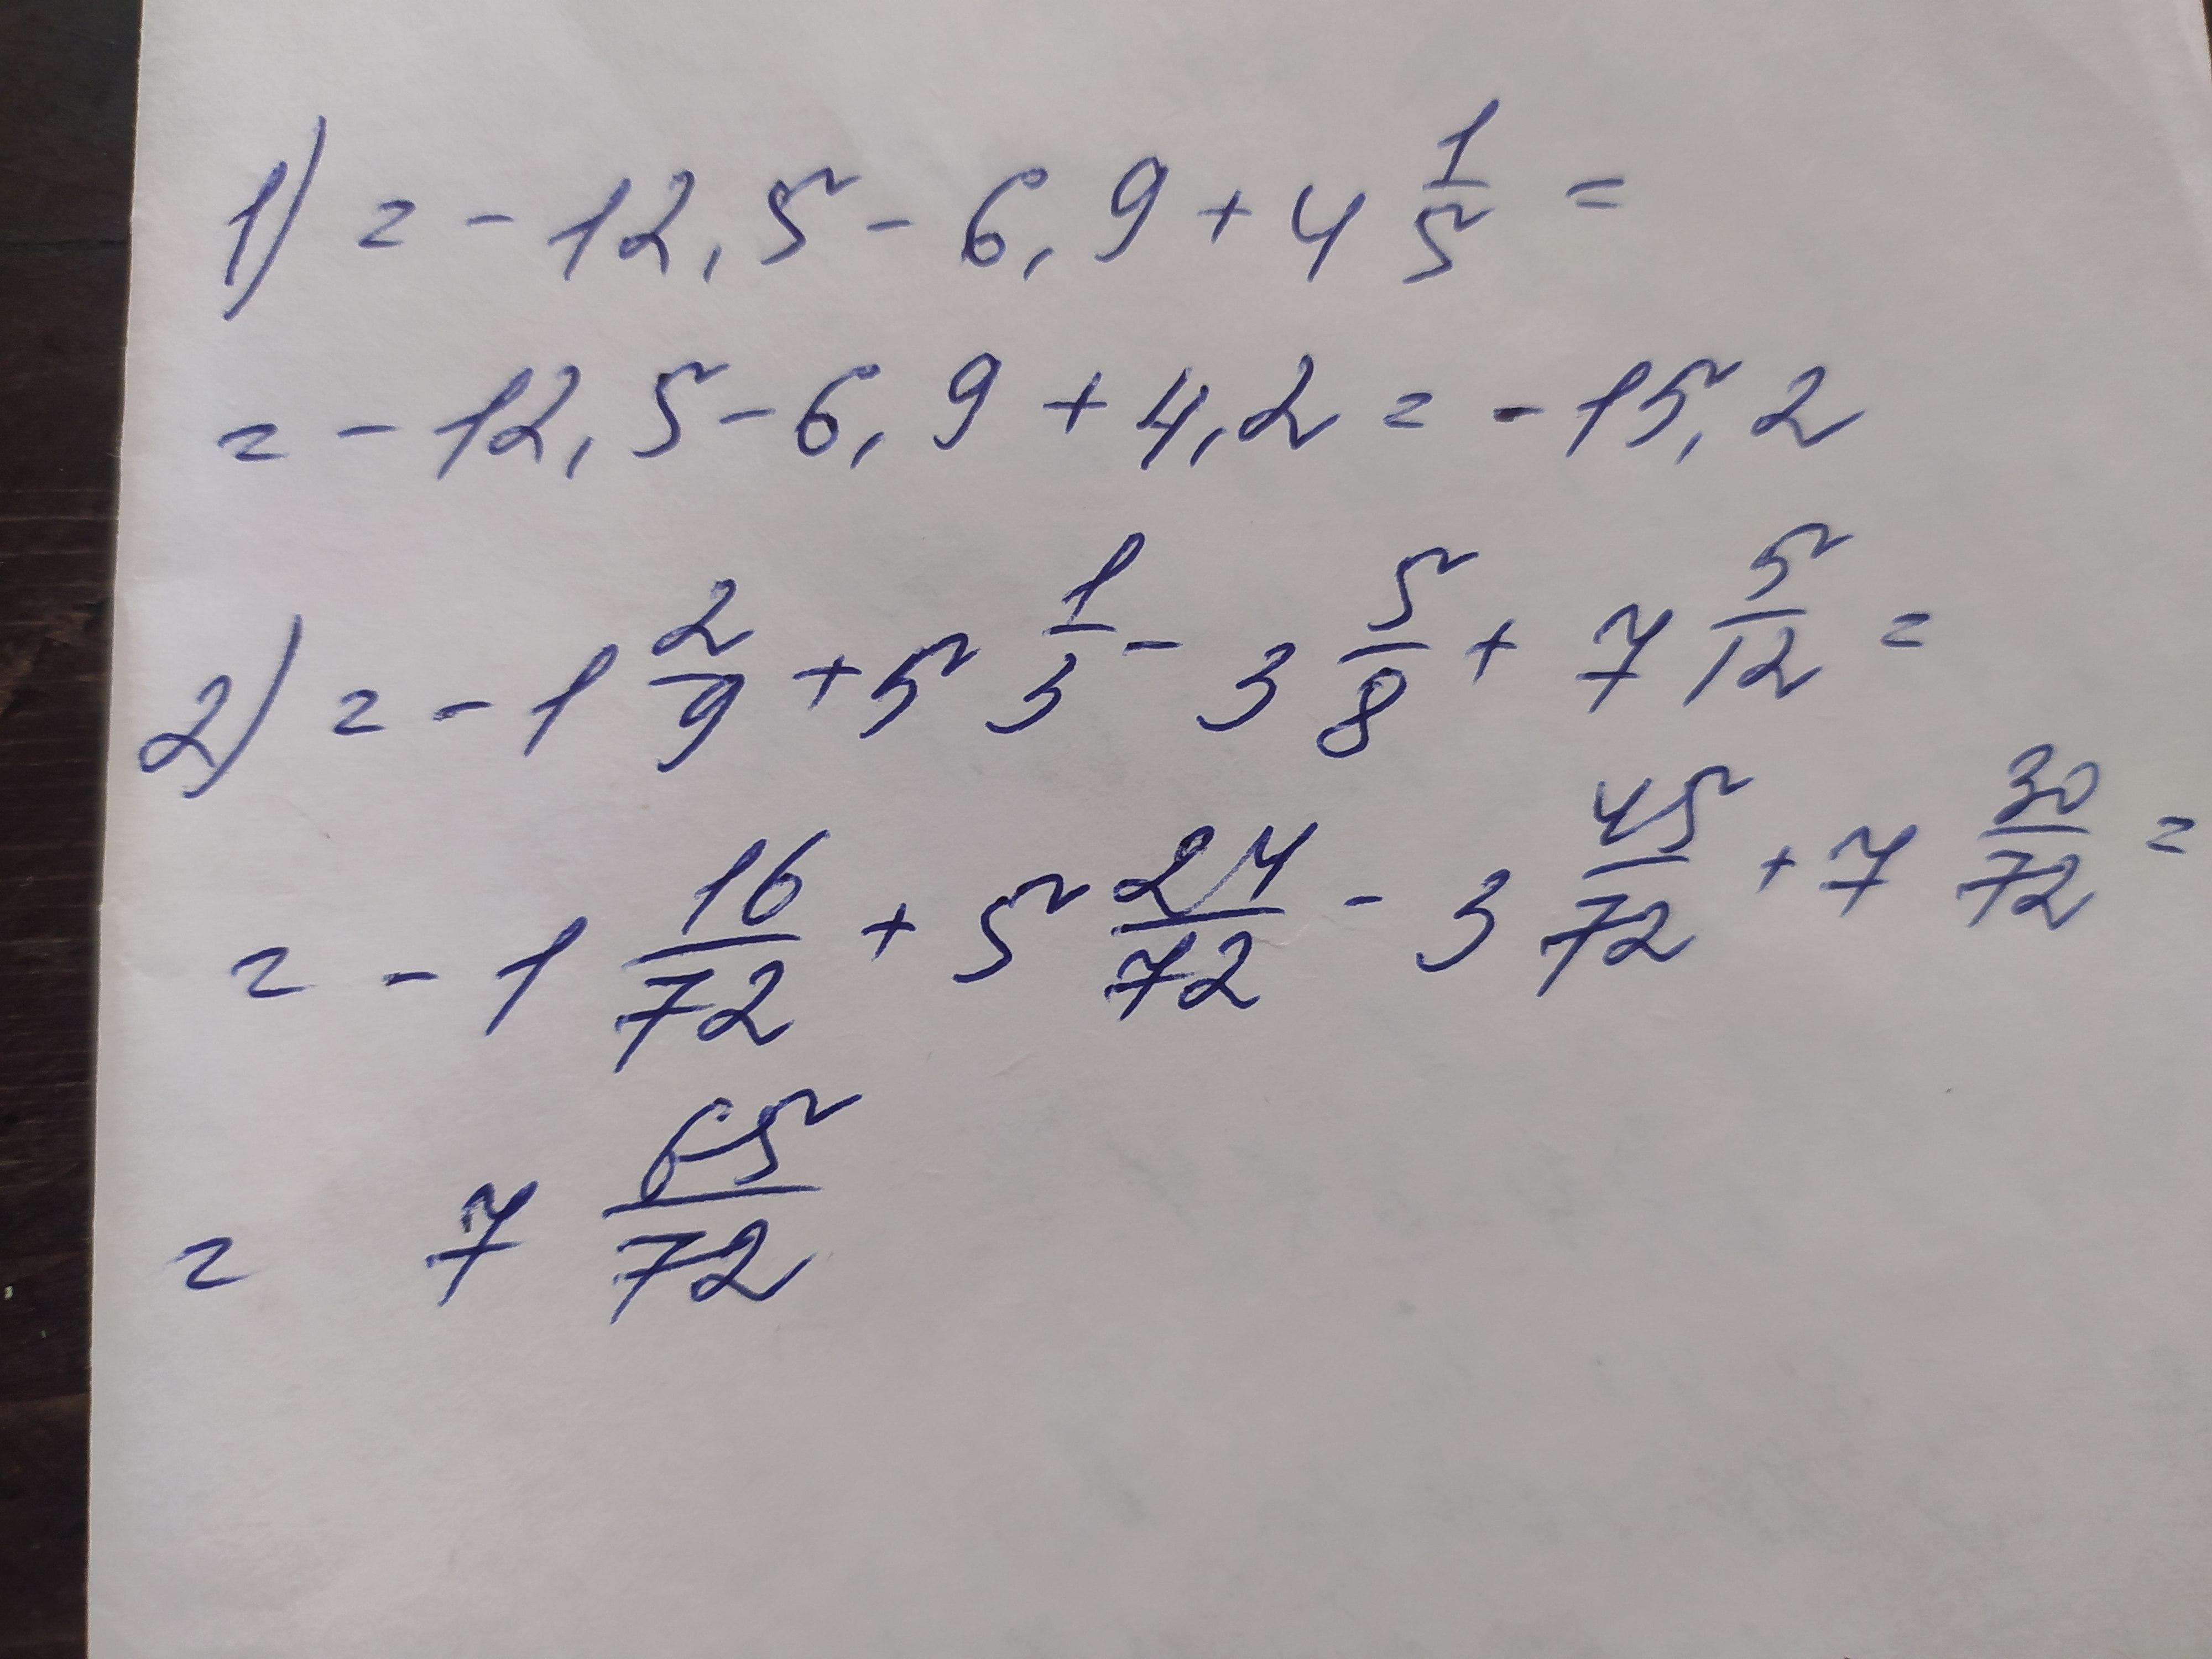 1) = - 12,5 - 6,9 + 4 1/5 =
= - 12,5 - 6,9 + 4,2 = - 15,2
2) = - 1 2/9 + 5 1/3 - 3 5/8 + 7 5/12 =
= - 1 16/72 + 5 24/72 - 3 45/72 + 7 30/72 =
= 7 65/72